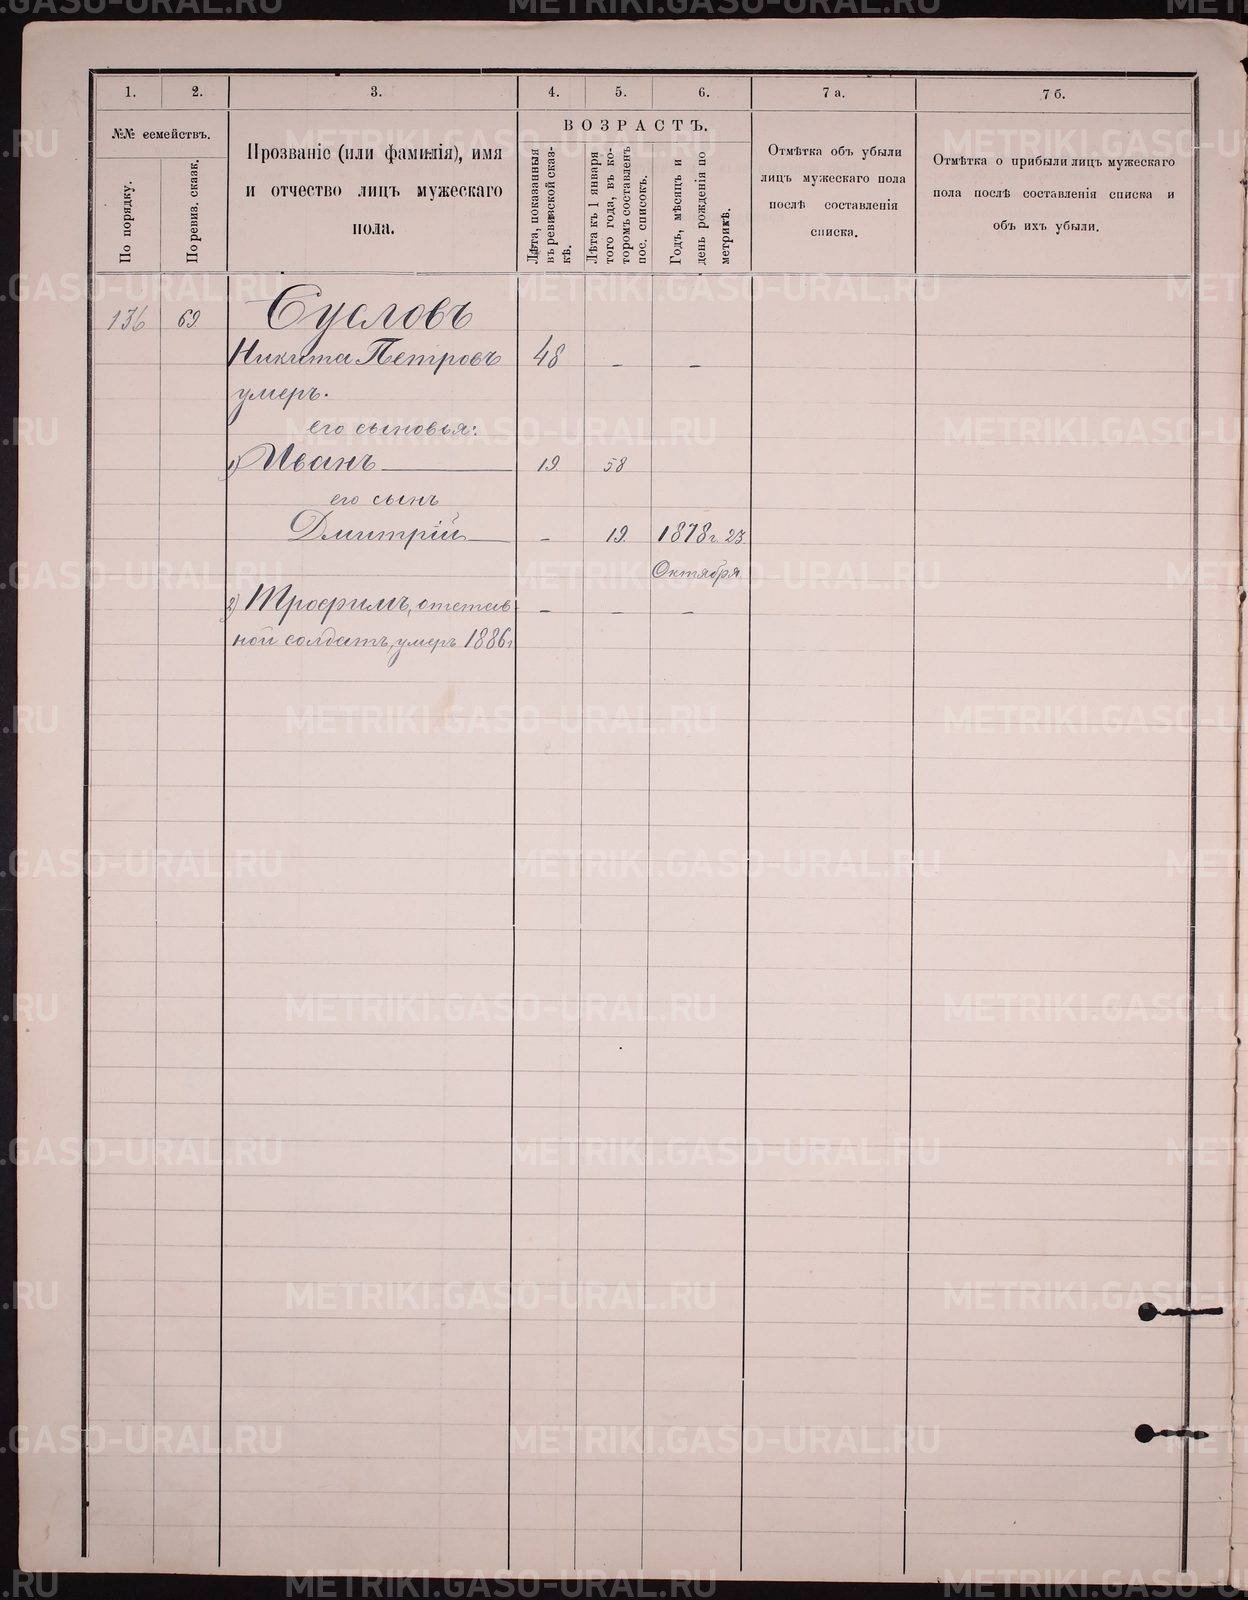 1.
2.
3.
4.
5.
6.
7 а.
7 б.
№№ семействъ.
По порядку.
По ревиз. сказк.
Прозваніе (или фамилія), имя
и отчество лицъ мужескаго
пола.
ВОЗРАСТЪ.
Лѣта, показанныя
въ ревизской сказ-
кѣ.
Лѣта къ 1 января
того года, въ ко-
торомъ составленъ
пос. списокъ.
Годъ, мѣсяцъ и
день рожденія по
метрикѣ.
Отмѣтка объ убыли
лицъ мужескаго пола
послѣ составленія
списка.
Отмѣтка о прибыли лицъ мужескаго
пола послѣ составленія списка и
объ ихъ убыли.
136 69 Сусловъ
Никита Петровъ 48 - -
умеръ.
его сыновья:
1) Иванъ 19. 58
его сынъ
Дмитрій - 19. 1878 г. 23
Октября
2) Трофимъ, отстав- - - -
ной солдатъ, умеръ 1886 г
METRIKI.GASO-URAL.RU